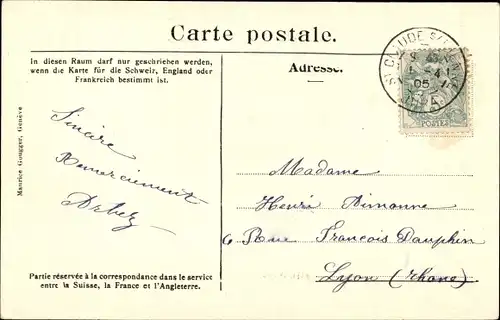 Carte postale.
In diesen Raum darf nur geschrieben werden,
wenn die Karte für die Schweiz, England oder
Frankreich bestimmt ist.
Adresse.
ST CLAUDE
05
POSTES
Maurice Gougger, Genève
Sincère
Remerciement
Arbez
Madame
Henri Aimonne
6 Rue François Dauphin
Lyon (Rhone)
Partie réservée à la correspondance dans le service
entre la Suisse, la France et l'Angleterre.